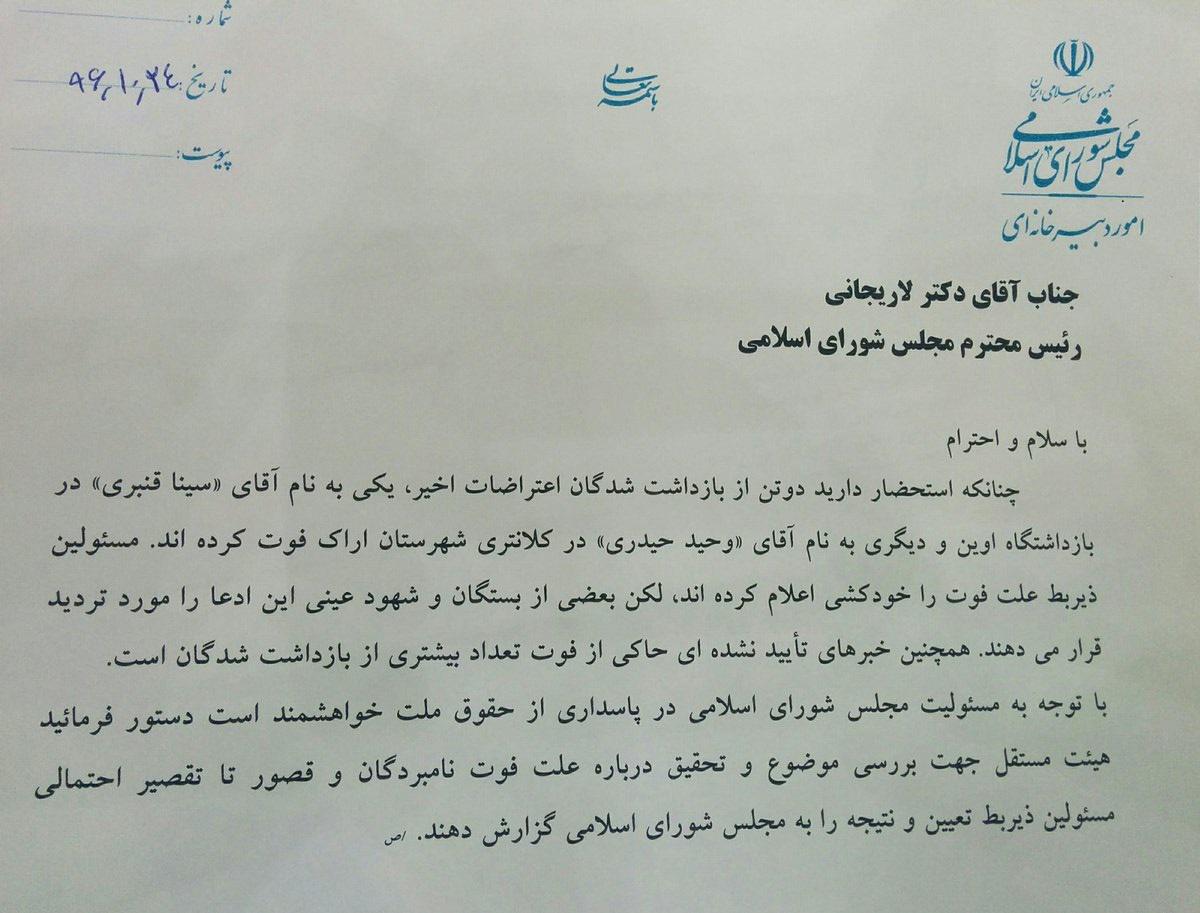 جمهوری اسلامی ایران
مجلس شورای اسلامی
امور دبیرخانه‌ای
باسمه تعالی
شماره:
تاریخ: ۹۶,۱۰,۲۴
پیوست:
جناب آقای دکتر لاریجانی
رئیس محترم مجلس شورای اسلامی
با سلام و احترام
چنانکه استحضار دارید دوتن از بازداشت شدگان اعتراضات اخیر، یکی به نام آقای «سینا قنبری» در
بازداشتگاه اوین و دیگری به نام آقای «وحید حیدری» در کلانتری شهرستان اراک فوت کرده اند. مسئولین
ذیربط علت فوت را خودکشی اعلام کرده اند، لکن بعضی از بستگان و شهود عینی این ادعا را مورد تردید
قرار می دهند. همچنین خبرهای تأیید نشده ای حاکی از فوت تعداد بیشتری از بازداشت شدگان است.
با توجه به مسئولیت مجلس شورای اسلامی در پاسداری از حقوق ملت خواهشمند است دستور فرمائید
هیئت مستقل جهت بررسی موضوع و تحقیق درباره علت فوت نامبردگان و قصور تا تقصیر احتمالی
مسئولین ذیربط تعیین و نتیجه را به مجلس شورای اسلامی گزارش دهند. /ص